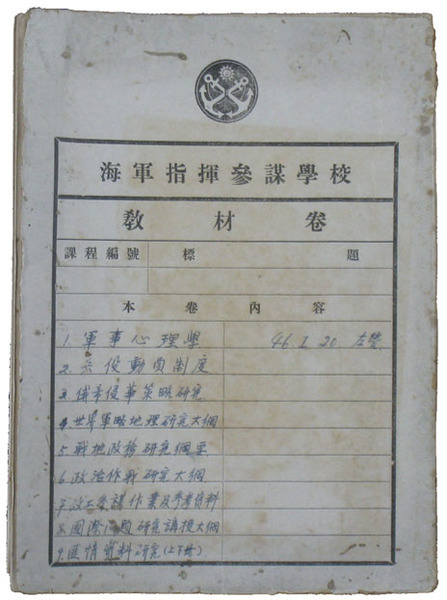 海軍指揮參謀學校
教材卷
課程編號 標題
本卷內容
1. 軍事心理學 46. I. 20 左營
2. 兵役動員制度
3. 俄帝侵華策略研究
4. 世界軍略地理研究大綱
5. 戰地政務研究綱要
6. 政治作戰研究大綱
7. 政工參謀作業及參考資料
8. 國際 研究講授大綱
9. 匪情資料研究(上下冊)